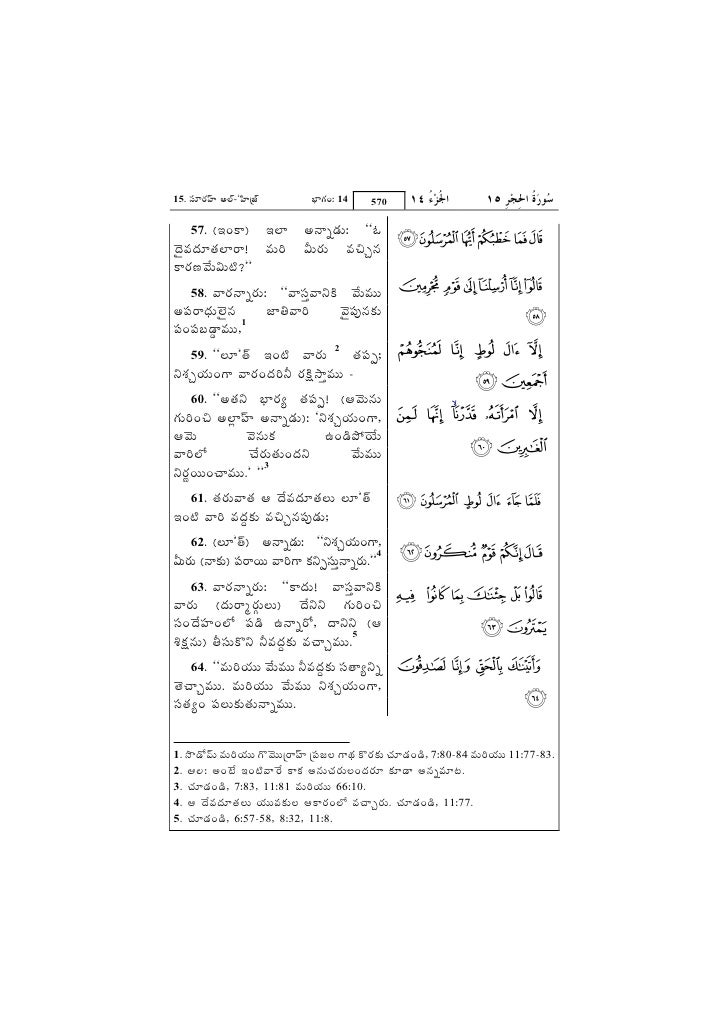 15. సూరహ్ అల్-'హిజ్ర్ భాగం: 14 570 الْجُزْءُ ١٤ سُورَةُ الحِجْرِ ١٥
57. (ఇంకా) ఇలా అన్నాడు: ‘‘ఓ
దైవదూతలారా! మరి మీరు వచ్చిన
కారణమేమిటి?’’
58. వారన్నారు: ‘‘వాస్తవానికి మేము
అపరాధులైన జాతివారి వైపునకు
పంపబడ్డాము,1
59. ‘‘లూ'త్ ఇంటి వారు 2 తప్ప;
నిశ్చయంగా వారందరినీ రక్షిస్తాము -
60. ‘‘అతని భార్య తప్ప! (ఆమెను
గురించి అల్లాహ్ అన్నాడు): ‘నిశ్చయంగా,
ఆమె వెనుక ఉండిపోయే
వారిలో చేరుతుందని మేము
నిర్ణయించాము.’ ’’3
61. తరువాత ఆ దేవదూతలు లూ'త్
ఇంటి వారి వద్దకు వచ్చినపుడు;
62. (లూ'త్) అన్నాడు: ‘‘నిశ్చయంగా,
మీరు (నాకు) పరాయి వారిగా కనిపిస్తున్నారు.’’4
63. వారన్నారు: ‘‘కాదు! వాస్తవానికి
వారు (దుర్మార్గులు) దేనిని గురించి
సందేహంలో పడి ఉన్నారో, దానిని (ఆ
శిక్షను) తీసుకొని నీవద్దకు వచ్చాము.5
64. ‘‘మరియు మేము నీవద్దకు సత్యాన్ని
తెచ్చాము. మరియు మేము నిశ్చయంగా,
సత్యం పలుకుతున్నాము.
قَالَ فَمَا خَطْبُكُمْ أَيُّهَا الْمُرْسَلُونَ ٥٧
قَالُوٓا۟ إِنَّآ أُرْسِلْنَآ إِلَىٰ قَوْمٍ مُّجْرِمِينَ
٥٨
إِلَّآ ءَالَ لُوطٍ إِنَّا لَمُنَجُّوهُمْ
أَجْمَعِينَ ٥٩
إِلَّا ٱمْرَأَتَهُۥ قَدَّرْنَآ إِنَّهَا لَمِنَ
ٱلْغَـٰبِرِينَ ٦٠
فَلَمَّا جَآءَ ءَالَ لُوطٍ ٱلْمُرْسَلُونَ ٦١
قَالَ إِنَّكُمْ قَوْمٌ مُّنكَرُونَ ٦٢
قَالُوا۟ بَلْ جِئْنَـٰكَ بِمَا كَانُوا۟ فِيهِ
يَمْتَرُونَ ٦٣
وَأَتَيْنَـٰكَ بِٱلْحَقِّ وَإِنَّا لَصَـٰدِقُونَ
٦٤
1. సొడోమ్ మరియు గొమొర్రాహ్ ప్రజల గాథ కొరకు చూడండి, 7:80-84 మరియు 11:77-83.
2. ఆల: అంటే ఇంటివారే కాక అనుచరులందరూ కూడా అన్నమాట.
3. చూడండి, 7:83, 11:81 మరియు 66:10.
4. ఆ దేవదూతలు యువకుల ఆకారంలో వచ్చారు. చూడండి, 11:77.
5. చూడండి, 6:57-58, 8:32, 11:8.